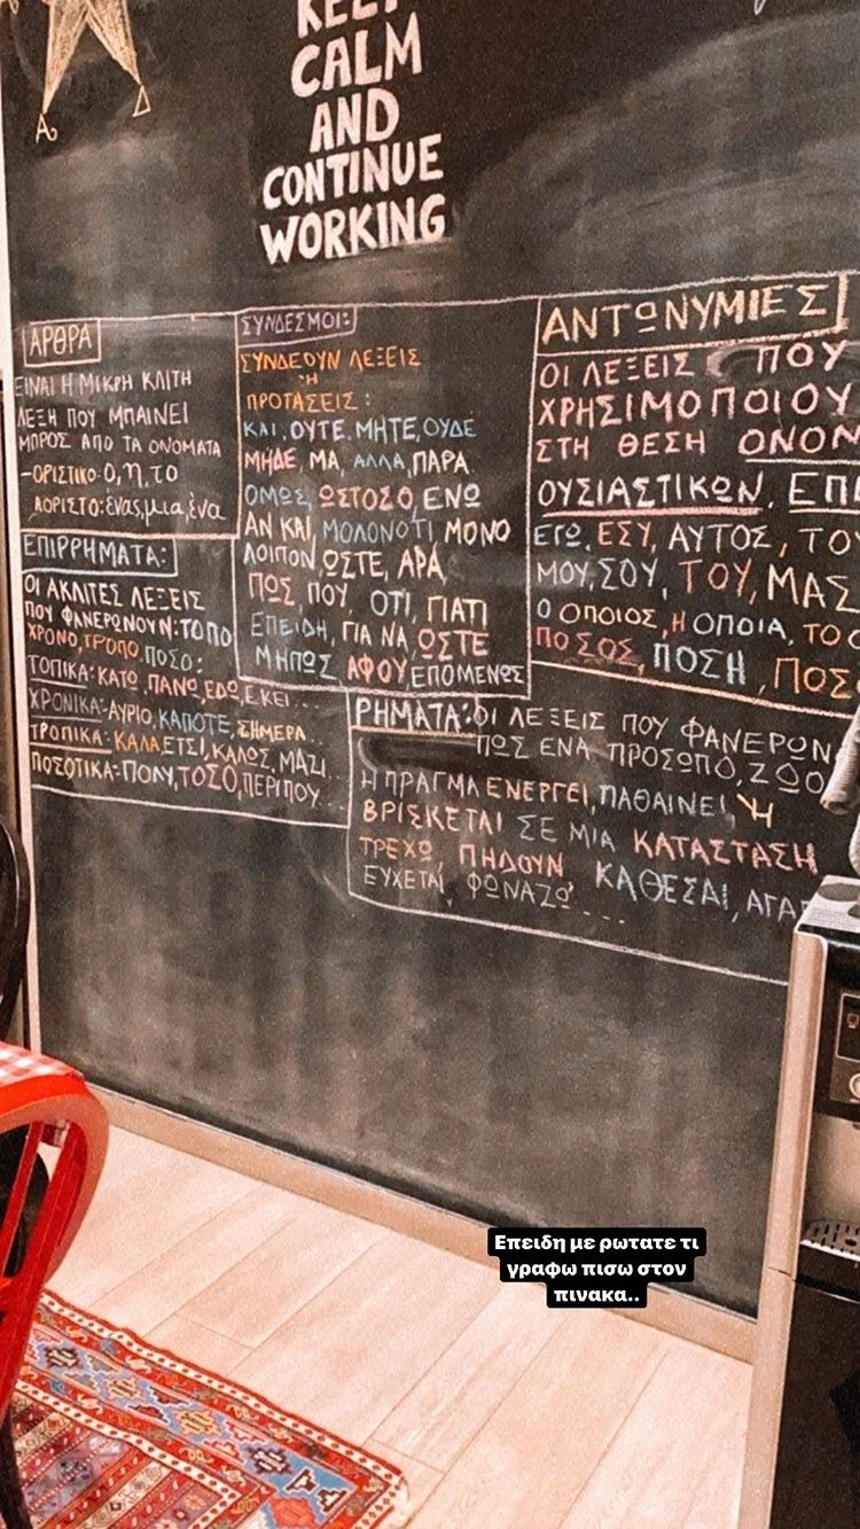 KEEP
CALM
AND
CONTINUE
WORKING
ΑΡΘΡΑ
ΕΙΝΑΙ Η ΜΙΚΡΗ ΚΛΙΤΗ
ΛΕΞΗ ΠΟΥ ΜΠΑΙΝΕΙ
ΜΠΡΟΣ ΑΠΟ ΤΑ ΟΝΟΜΑΤΑ
-ΟΡΙΣΤΙΚΟ: Ο, η, το
ΑΟΡΙΣΤΟ: ένας, μια, ένα
ΕΠΙΡΡΗΜΑΤΑ:
ΟΙ ΑΚΛΙΤΕΣ ΛΕΞΕΙΣ
ΠΟΥ ΦΑΝΕΡΩΝΟΥΝ: ΤΟΠΟ
ΧΡΟΝΟ, ΤΡΟΠΟ, ΠΟΣΟ:
ΤΟΠΙΚΑ: ΚΑΤΩ, ΠΑΝΩ, ΕΔΩ, ΕΚΕΙ...
ΧΡΟΝΙΚΑ: ΑΥΡΙΟ, ΚΑΠΟΤΕ, ΣΗΜΕΡΑ..
ΤΡΟΠΙΚΑ: ΚΑΛΑ, ΕΤΣΙ, ΚΑΛΩΣ, ΜΑΖΙ..
ΠΟΣΟΤΙΚΑ: ΠΟΛΥ, ΤΟΣΟ, ΠΕΡΙΠΟΥ...
ΣΥΝΔΕΣΜΟΙ:
ΣΥΝΔΕΟΥΝ ΛΕΞΕΙΣ
Ή
ΠΡΟΤΑΣΕΙΣ:
ΚΑΙ, ΟΥΤΕ, ΜΗΤΕ, ΟΥΔΕ
ΜΗΔΕ, ΜΑ, ΑΛΛΑ, ΠΑΡΑ
ΟΜΩΣ, ΩΣΤΟΣΟ, ΕΝΩ
ΑΝ ΚΑΙ, ΜΟΛΟΝΟΤΙ, ΜΟΝΟ
ΛΟΙΠΟΝ, ΩΣΤΕ, ΑΡΑ,
ΠΩΣ, ΠΟΥ, ΟΤΙ, ΓΙΑΤΙ
ΕΠΕΙΔΗ, ΓΙΑ ΝΑ, ΩΣΤΕ
ΜΗΠΩΣ, ΑΦΟΥ, ΕΠΟΜΕΝΩΣ
ΑΝΤΩΝΥΜΙΕΣ
ΟΙ ΛΕΞΕΙΣ ΠΟΥ
ΧΡΗΣΙΜΟΠΟΙΟΥ
ΣΤΗ ΘΕΣΗ ΟΝΟΜ
ΟΥΣΙΑΣΤΙΚΩΝ, ΕΠΙ
ΕΓΩ, ΕΣΥ, ΑΥΤΟΣ, ΤΟΥ
ΜΟΥ, ΣΟΥ, ΤΟΥ, ΜΑΣ
Ο ΟΠΟΙΟΣ, Η ΟΠΟΙΑ, ΤΟ Ο
ΠΟΣΟΣ, ΠΟΣΗ, ΠΟΣΟ
ΡΗΜΑΤΑ: ΟΙ ΛΕΞΕΙΣ ΠΟΥ ΦΑΝΕΡΩΝ
ΠΩΣ ΕΝΑ ΠΡΟΣΩΠΟ, ΖΩΟ
Η ΠΡΑΓΜΑ ΕΝΕΡΓΕΙ, ΠΑΘΑΙΝΕΙ, Ή
ΒΡΙΣΚΕΤΑΙ ΣΕ ΜΙΑ ΚΑΤΑΣΤΑΣΗ
ΤΡΕΧΩ, ΠΗΔΟΥΝ, ΚΑΘΕΣΑΙ, ΑΓΑΠ
ΕΥΧΕΤΑΙ, ΦΩΝΑΖΩ....
Επειδη με ρωτατε τι
γραφω πισω στον
πινακα..